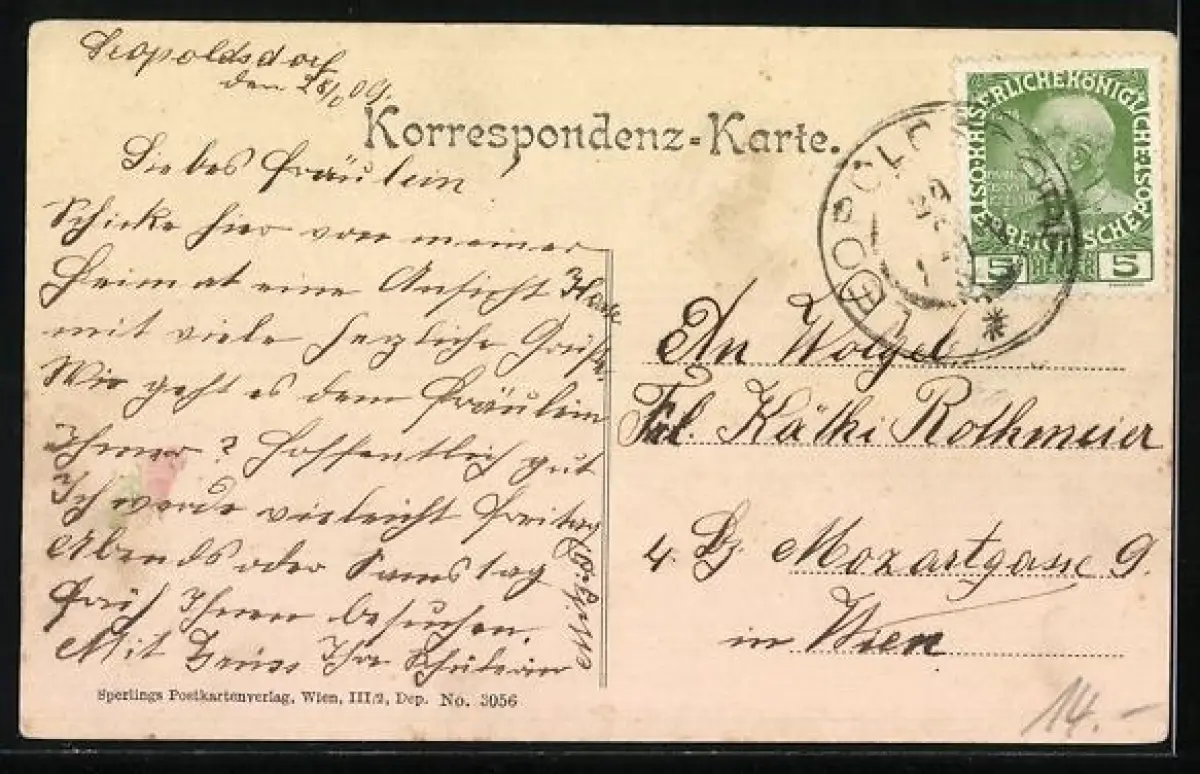 Leopoldsdorf
den 28/ 09.
Korrespondenz-Karte.
Liebes Fräulein
Schicke hier von meiner
Heimat eine Ansicht
mit viele herzliche Grüße.
Wie geht es dem Fräulein
Ihmer? Hoffentlich gut
Ich werde vieleicht Freitag
Abends oder Samstag
früh Ihnen besuchen.
Mit Gruss Ihr
Sperlings Postkartenverlag, Wien, III/2, Dep. No. 3056
KAISERLICHE KÖNIGLICHE ÖSTERREICHISCHE POST
5 HELLER 5
An
Frl. Käthi Rothmeier
4. Bz. Mozartgasse 9.
in Wien
14.-